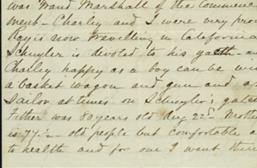 was Grand Marshall of the Commence
ment - Charley and I were very pro
Ray is now travelling in California
Schuyler is devoted to his yacht - an
Charley happy as a boy can be wi
a basket wagon and gun and a
Sailor at times on Schuyler's yach
Father was 80 years old Aug 22d Moth
is 77 - old people but comfortable a
to health and for one I went thi